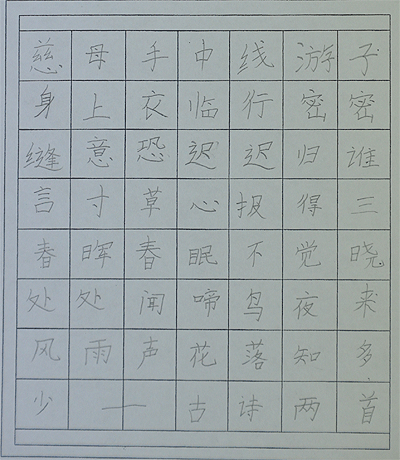 慈母手中线游子
身上衣临行密密
缝意恐迟迟归谁
言寸草心报得三
春晖春眠不觉晓
处处闻啼鸟夜来
风雨声花落知多
少——古诗两首